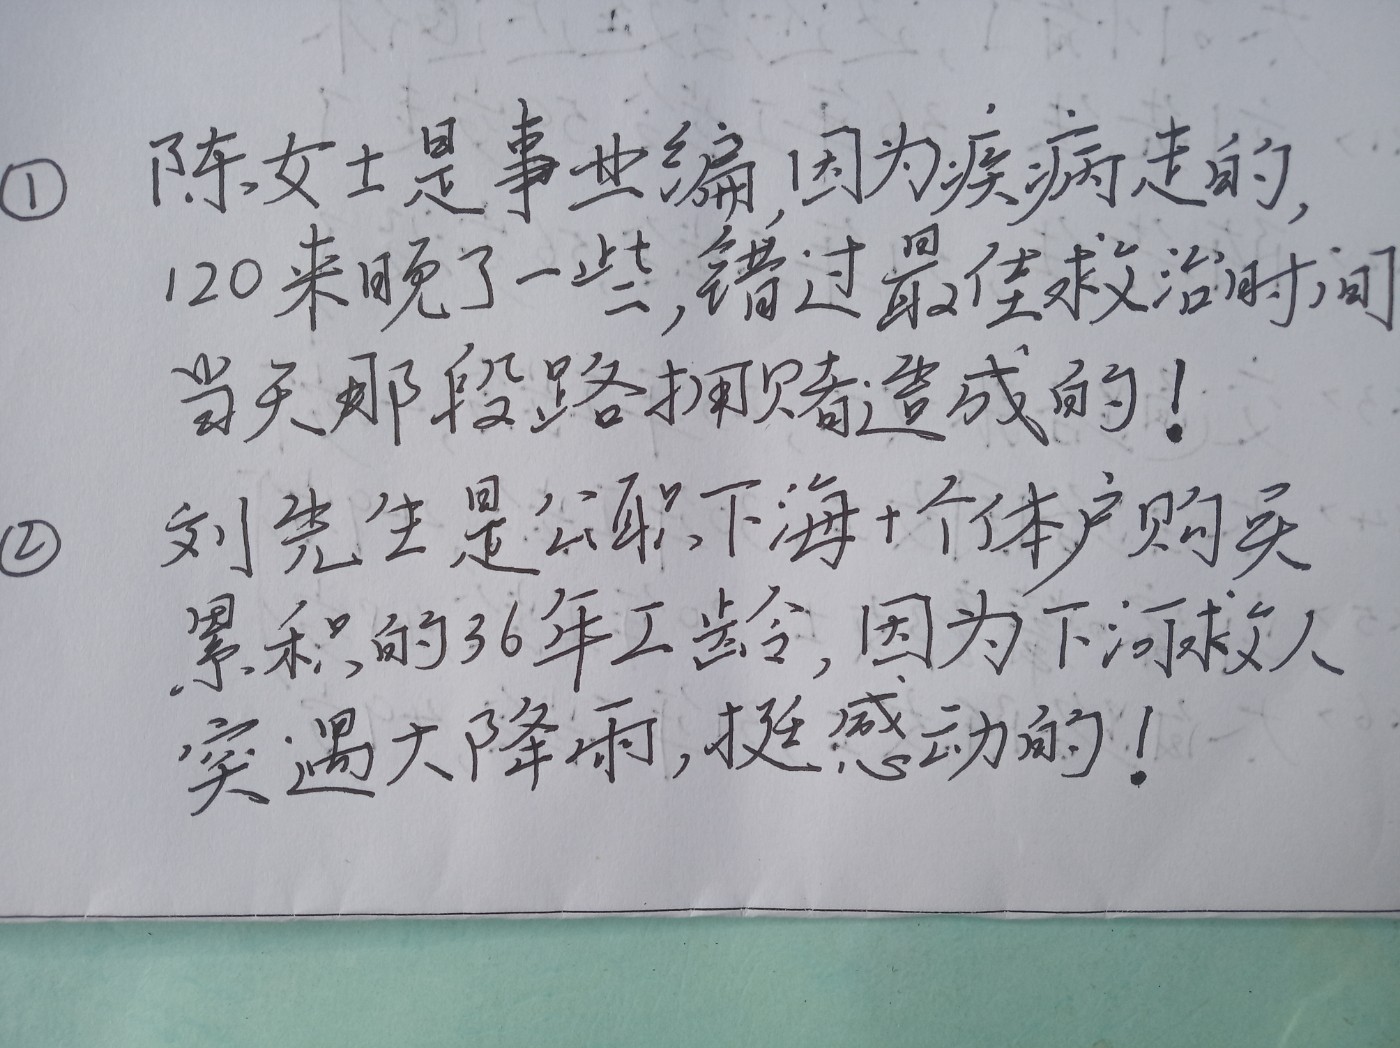 ① 陈女士是事业编,因为疾病走的,
120来晚了一些,错过最佳救治时间
当天那段路拥赌造成的!
② 刘先生是公职下海+个体户购买
累积的36年工龄,因为下河救人
突遇大降雨,挺感动的!